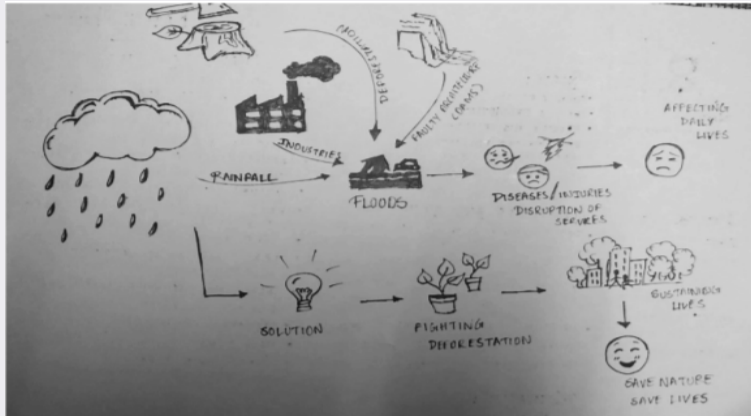 DEFORESTATION
FAULTY
(DAMS)
INDUSTRIES
RAINFALL
FLOODS
DISEASES/INJURIES
DISRUPTION OF
SERVICES
AFFECTING
DAILY
LIVES
SOLUTION
FIGHTING
DEFORESTATION
SUSTAINING
LIVES
SAVE NATURE
SAVE LIVES